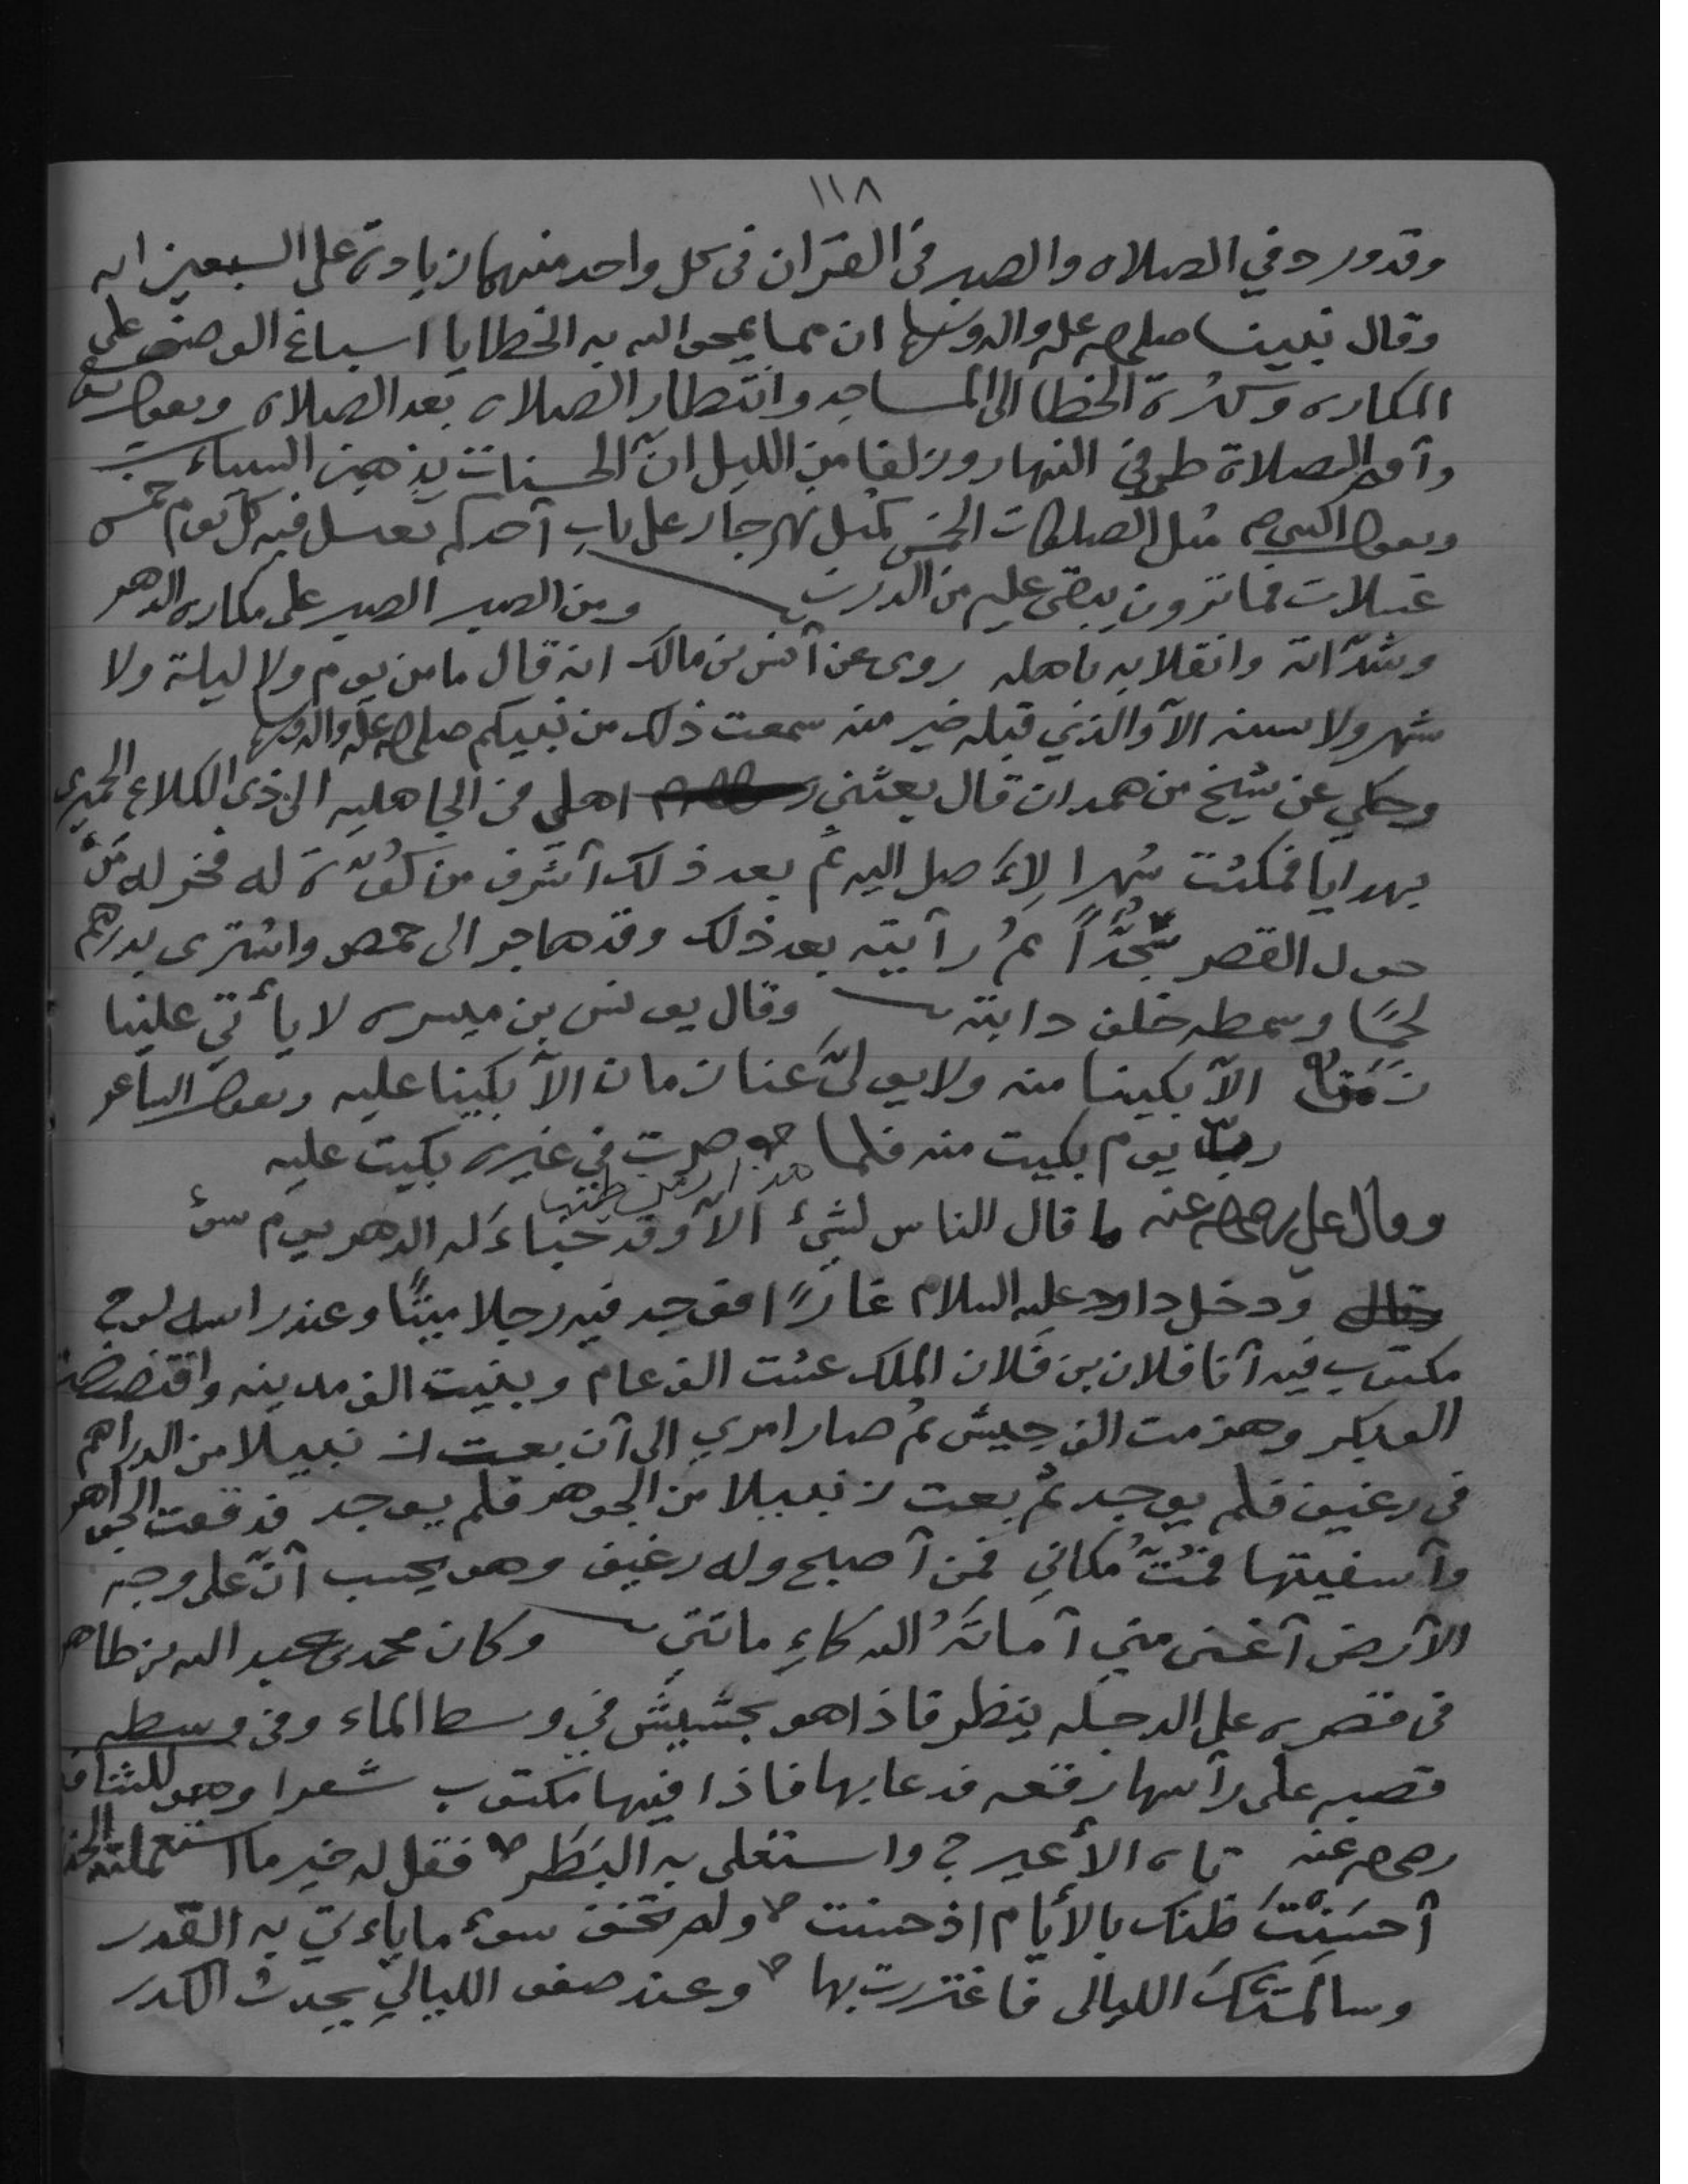 ١١٨
وقد ورد في الصلاه والصبر في القرآن في كل واحد منهما زيادة على السبعين ايه
وقال نبينا صلى الله عليه واله وسلم ان مما يمحو الله به الخطايا اسباغ الوضوء على
المكاره وكثرة الخطا الى المساجد وانتظار الصلاه بعد الصلاه ويقول تعالى
وأقم الصلاة طرفي النهار وزلفا من الليل انّ الحسنات يذهبن السيئات
ويقول النبي مثل الصلوات الخمس كمثل نهر جار على باب أحدكم يغسل فيه كل يوم خمس
غسلات فما ترون يبقى عليه من الدرن ومن الصبر الصبر على مكاره الدهر
وشدّاته وانقلابه باهله روى عن أنس بن مالك انه قال ما من يوم ولا ليلة ولا
شهر ولا سنه الاّ والذي قبله خير منه سمعت ذلك من نبيكم صلى الله عليه واله وسلم
وحكي عن شيخ من همدان قال بعثني اهلي في الجاهليه الى ذي الكلاع الحميري
بهدايا فمكثت شهرا لا أصل اليه ثم بعد ذلك أشرف من كوّة له فخر له منْ
حول القصر سُجّداً ثم رأيته بعد ذلك وقد هاجر الى حمص واشترى بدرهم
لحمًا وسمطه خلف دابته وقال يونس بن ميسره لا يأتي علينا
زمَنٌ الاّ بكينا منه ولا يولّى عنا زمان الاّ بكينا عليه ويقول الشاعر
ربّ يوم بكيت منه فلما صرت في غيره بكيت عليه
وقال علي رضي الله عنه ما قال الناس لشيء الاّ وقد خباء له الدهر يوم سوء
ودخل داود عليه السلام غارًا فوجد فيه رجلا ميتًا وعند راسه لوح
مكتوب فيه أنا فلان بن فلان الملك عشت الف عام وبنيت الف مدينه وافتضضت
الف بكر وهزمت الف جيش ثم صار امري الى أن بعت زنبيلا من الدراهم
في رغيف فلم يوجد ثم بعت زنبيلا من الجوهر فلم يوجد فدققت الجواهر
وأسفيتها فمُتُّ مكاني فمن أصبح وله رغيف وهو يحسب أنّ على وجه
الأرض أغنى مني أماتَهُ الله كاءِ ماتتي وكان محمد بن عبد الله بن طاهر
في قصره على الدجله ينظر فاذا هو بحشيش في وسط الماء وفي وسطه
قصبه على رأسها رقعه فدعا بها فاذا فيها مكتوب شعرا وهو للشافعي
رضي الله عنه تاه الأعيرج واستعلى به البَطَر فقل له خير ما استعملته الحذر
أحسَنْتَ ظنك بالأيام اذ حسنت ولم تخف سوء ما يأتي به القدر
وسالمتْكَ الليالى فاغتررت بها وعند صفو الليالي يحدث الكدر